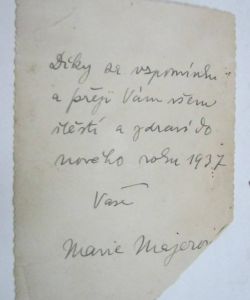 Díky za vzpomínku
a přeji Vám všem
štěstí a zdraví do
nového roku 1937
Vaše
Marie Majerov